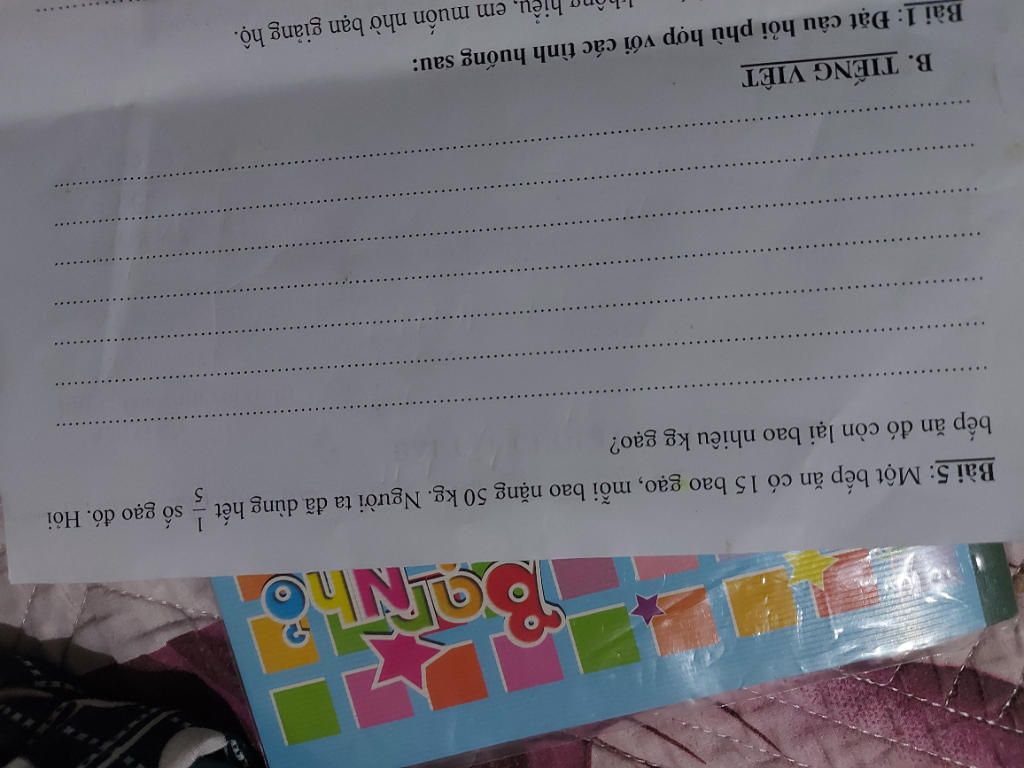 Bạn Nhỏ
Bài 5: Một bếp ăn có 15 bao gạo, mỗi bao nặng 50 kg. Người ta đã dùng hết 1/5 số gạo đó. Hỏi
bếp ăn đó còn lại bao nhiêu kg gạo?
B. TIẾNG VIỆT
Bài 1: Đặt câu hỏi phù hợp với các tình huống sau:
hiểu, em muốn nhờ bạn giảng hộ.